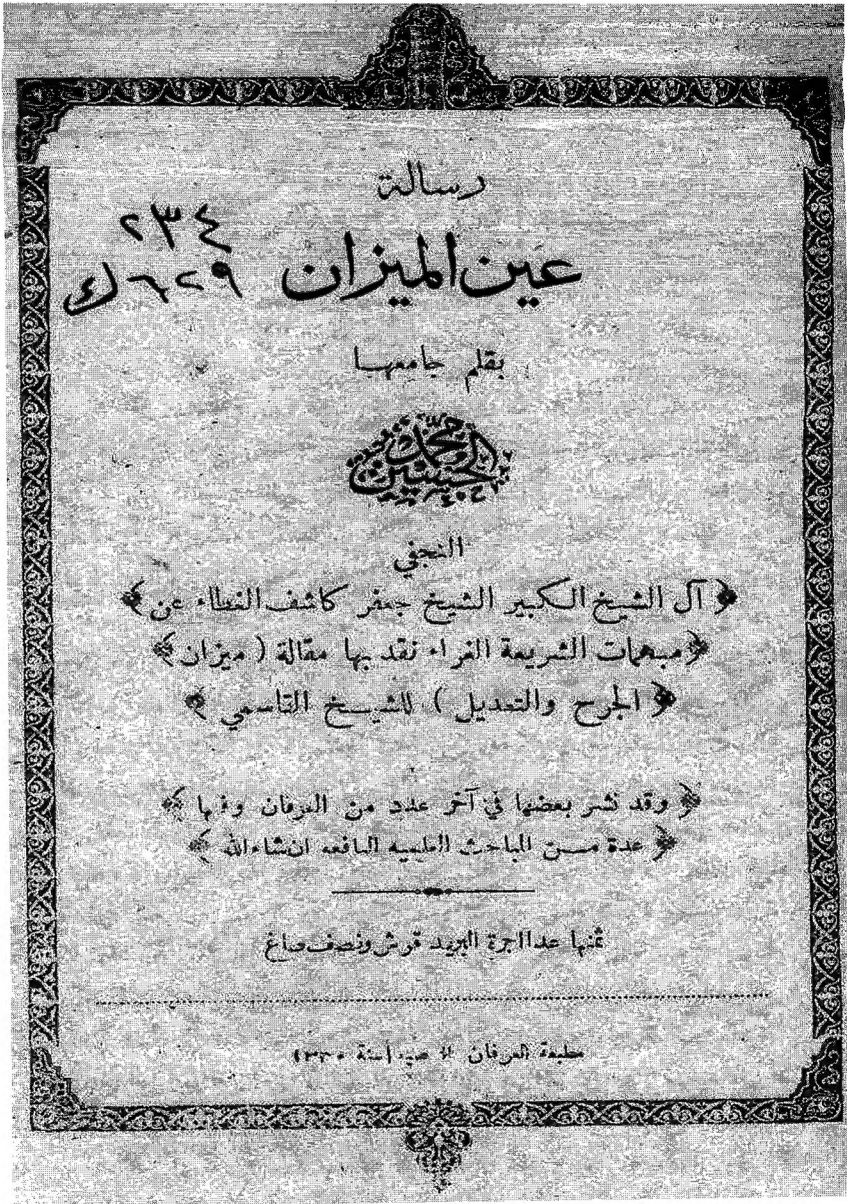 رسالة
٢٣٤
عين الميزان
٦٢٩ ك
بقلم جامعها
محمد الحسين
النجفي
﴿ آل الشيخ الكبير الشيخ جعفر كاشف الغطاء عن ﴾
﴿ مبهمات الشريعة الغراء نقد بها مقالة ( ميزان ﴾
﴿ الجرح والتعديل ) للشيخ القاسمي ﴾
﴿ وقد نشر بعضها في آخر عدد من العرفان وفيها ﴾
﴿ عدة من المباحث العلميه النافعه انشاءالله ﴾
ثمنها عدا اجرة البريد قرش ونصف صاغ
مطبعة العرفان سنة